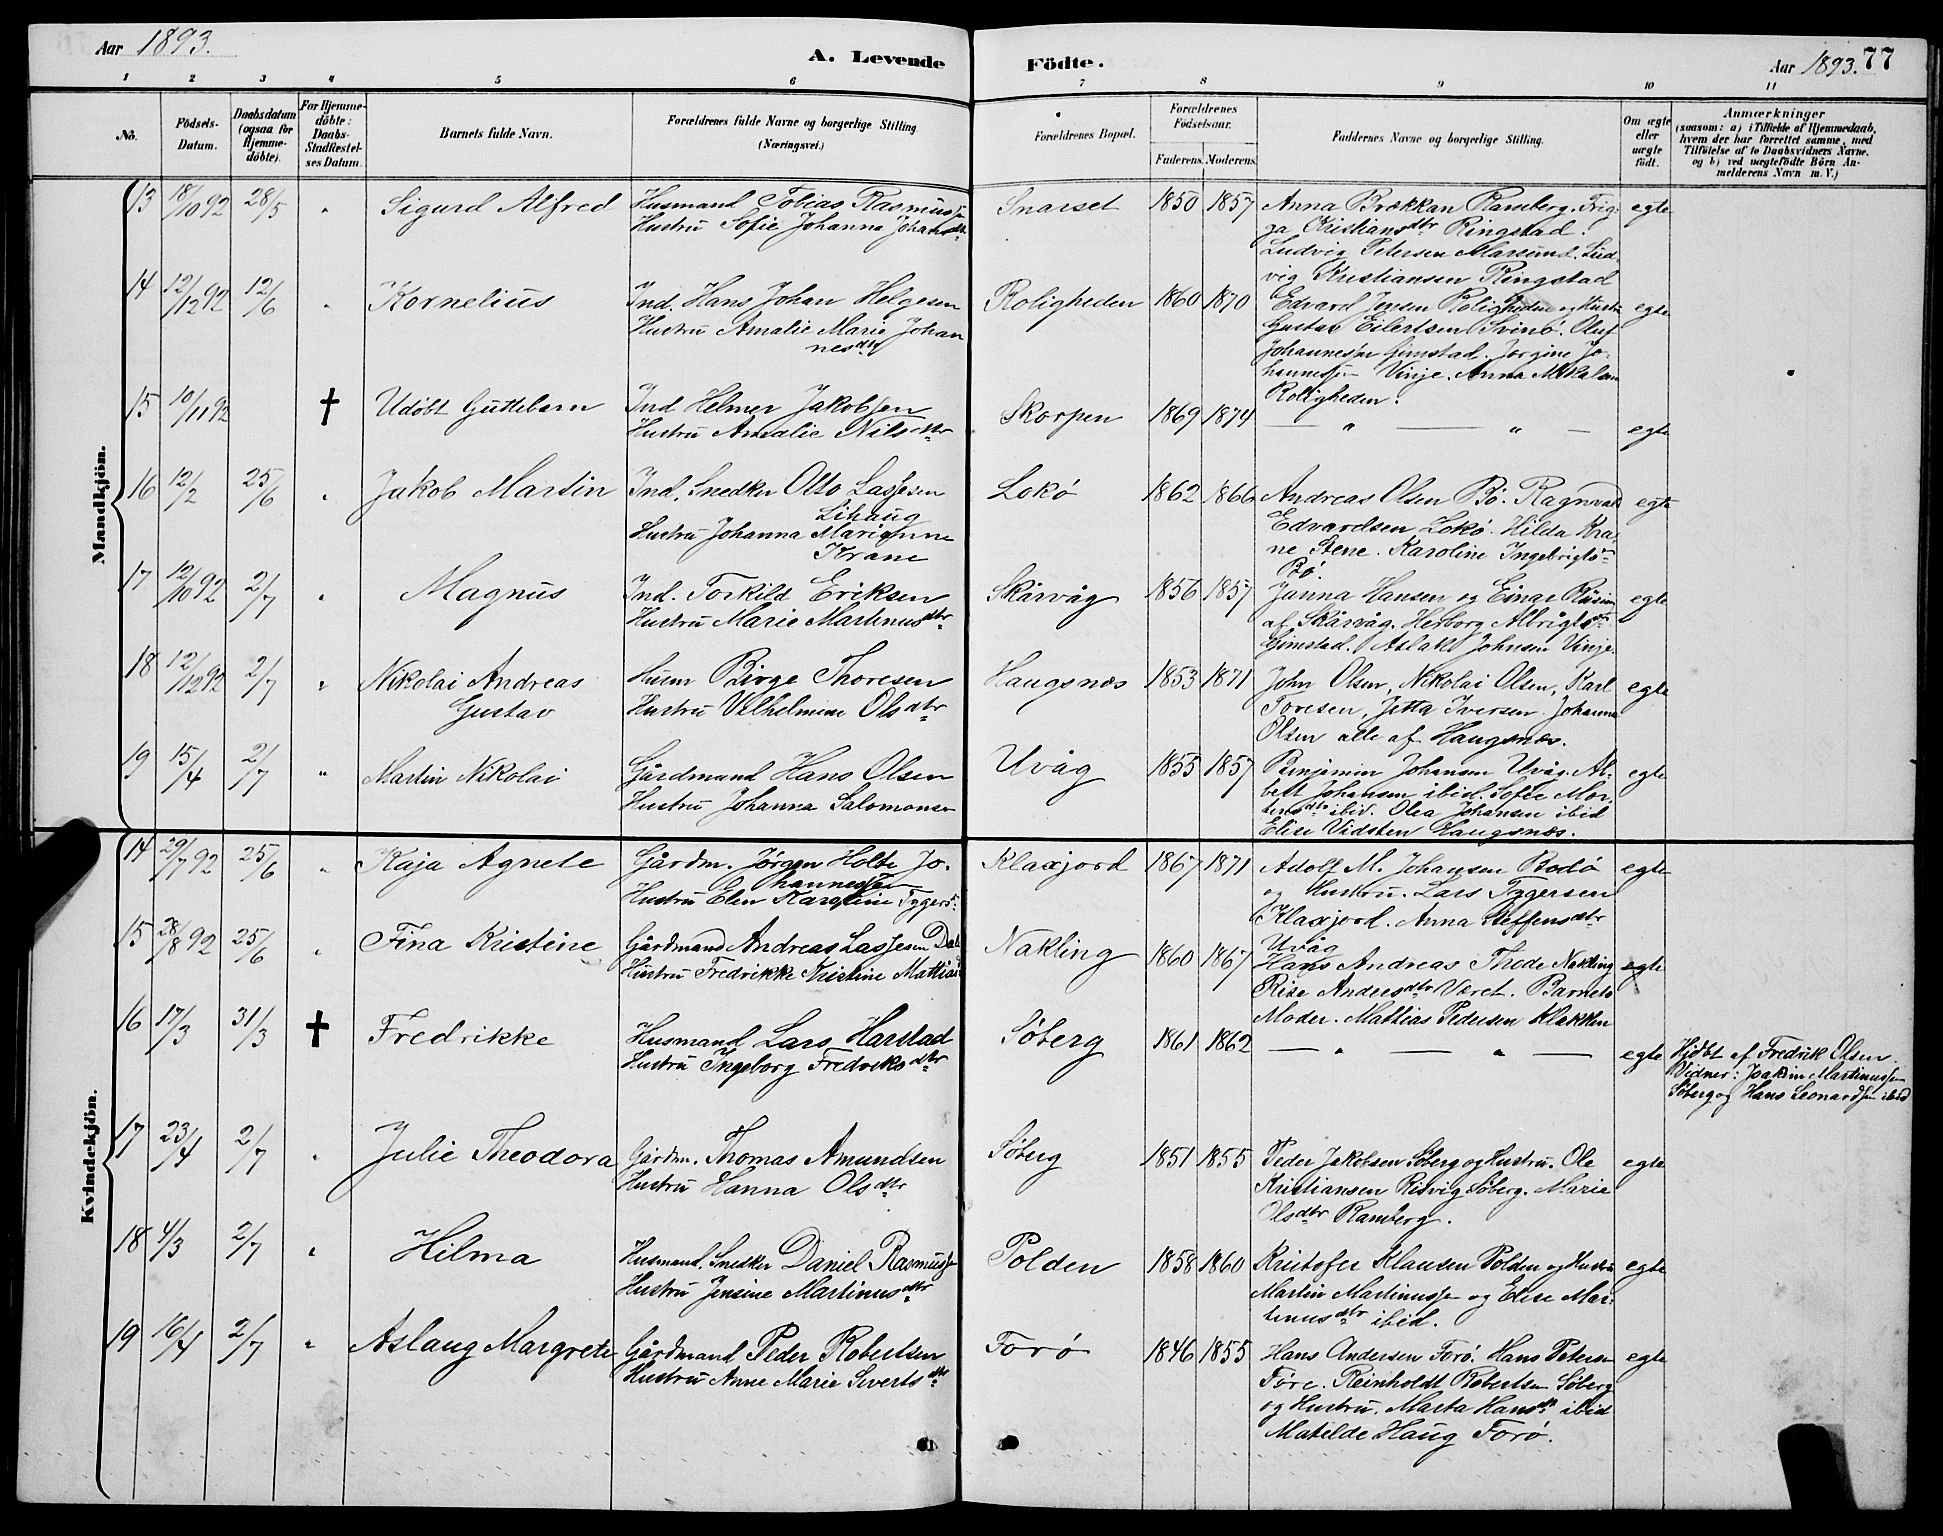 Aar 1893.
A. Levende
Födte.
Aar 1893. 77
1 2 3 4 5 6 7 8 9 10 11
No.
Födsels-
Datum.
Daabsdatum
(ogsaa for
Hjemme-
döbte).
For Hjemme-
döbte:
Daabs-
Stadfæstel-
ses Datum.
Barnets fulde Navn.
Forældrenes fulde Navne og borgerlige Stilling.
(Næringsvei.)
Forældrenes Bopæl.
Forældrenes
Födselsaar.
Faderens. Moderens.
Faddernes Navne og borgerlige Stilling.
Om ægte
eller
uægte
födt.
Anmærkninger
(saasom: a) i Tilfælde af Hjemmedaab,
hvem der har forrettet samme, med
Tilföielse af to Daabsvidners Navne,
og b) ved uægtefödte Börn An-
melderens Navn m. V.)
Mandkjön.
13 18/10 92 28/5 " Sigurd Alfred
Husmand Tobias Rasmussen
Hustru Sofie Johanna Johansdtr
Snarset 1850 1857
Anna Brækkan Ramberg. Trig-
ga Kristiansdtr Ringstad.
Ludvig Petersen Marsund. Lud
vig Kristiansen Ringstad
egte
14 12/12 92 12/6 " Kornelius
Ind. Hans Johan Helgesen
Hustru Amalie Marie Johan
nesdtr
Roligheden 1860 1870
Edvard Jensen Roligheden og Hustru
Gustav Eilertsen Svinö. Oluf
Johannessen Gimstad. Jorgine Jo-
hannessen Vinje. Anna Mikalsen
Roligheden.
egte
15 10/11 92 † Udöbt Guttebarn
Ind Helmer Jakobsen
Hustru Amalie Nilsdtr
Skorpen 1869 1874 — " — " — egte
16 12/2 25/6 " Jakob Martin
Ind. Snedker Otto Lassesen
Lihaug
Hustru Johanna Marianne
Krane
Lokö 1862 1866
Andreas Olsen Bö. Ragnvald
Edvardsen Lokö. Hilda Kra-
ne Stene. Karoline Ingebrigts-
Bö.
egte
17 12/10 92 2/7 " Magnus
Ind. Torkild Eriksen
Hustru Marie Martinusdtr
Skårvåg 1856 1857
Janna Hansen og Einar
af Skårvåg. Herborg Albrigts-
Gimstad. Aslak Johnsen Vinje.
egte
18 12/12 92 2/7 " Nikolai Andreas
Gustav
Husm Birge Thoresen
Hustru Vilhelmine Olsdtr
Haugsnæs 1853 1871
John Olsen, Nikolai Olsen, Karl
Toresen, Jetta Iversen. Johanna
Olsen alle af Haugsnæs.
egte
19 15/4 2/7 " Martin Nikolai
Gårdmand Hans Olsen
Hustru Johanna Salomonsen
Uvåg 1855 1857
Benjamin Johansen Uvåg. Al-
bert Johansen ibid. Sofie Mor-
tensdtr ibid. Olea Johansen ibid
Elise Vidsten Haugsnæs.
egte
Kvindekjön.
14 29/7 92 25/6 " Kaja Agnete
Gårdm. Jørgen Holte Jo-
hannessen
Hustru Elen Karoline Tygers-
Klaxjord 1867 1871
Adolf M. Johansen Bodö
og Hustru. Lars Tygersen
Klaxjord. Anna Steffensdtr
Uvåg
egte
15 28/8 92 25/6 " Fina Kristine
Gårdmand Andreas Lassesen Dal
Hustru Fredrikke Kristine Mattias
Nakling 1860 1867
Hans Andreas Thode Nakling
Rise Andersdtr Været. Barnets
Moder. Mathias Pedersen Klakken
egte
16 17/3 31/3 † Fredrikke
Husmand Lars Harstad
Hustru Ingeborg Fredreksdtr
Söberg 1861 1862 — " — " — egte
Hjdöbt af Fredrik Olsen.
Vidner: Joakim Martinussen
Söberg og Hans Leonardsen ibid
17 23/4 2/7 " Julie Theodora
Gårdm. Thomas Amundsen
Hustru Hanna Olsdtr
Söberg 1851 1855
Peder Jakobsen Söberg og Hustru. Ole
Kristiansen Risvig Söberg. Marie
Olsdtr Ramberg.
egte
18 4/3 2/7 " Hilma
Husmand, Snedker Daniel Rasmussen
Hustru Jensine Martinusdtr
Polden 1858 1860
Kristofer Klausen Polden og Hustru
Martin Martinussen og Elise Mar-
tinusdtr ibid.
egte
19 16/4 2/7 " Aslaug Margrete
Gårdmand Peder Robertsen
Hustru Anne Marie Sivertsdtr
Forö 1846 1855
Hans Andersen Forö. Hans Petersen
Före. Reinholdt Robertsen Söberg
og Hustru. Marta Hansdtr ibid
Matilde Haug Forö.
egte